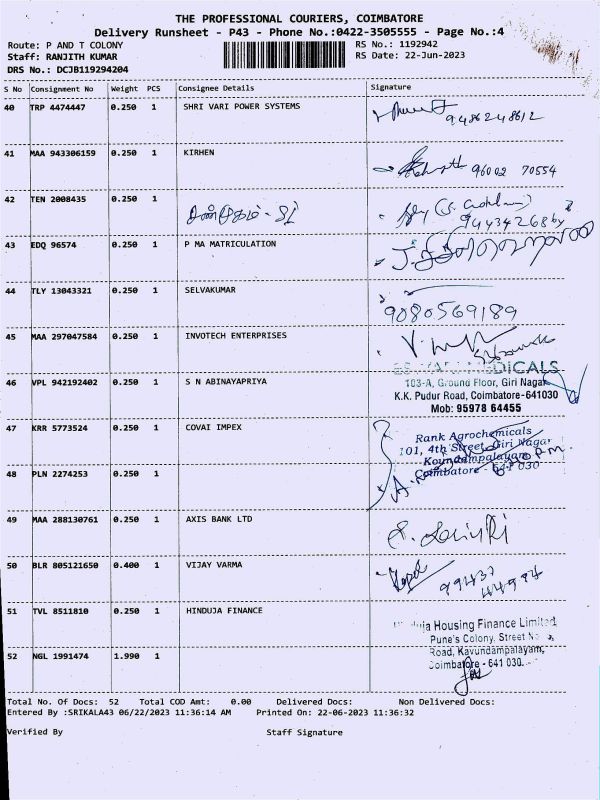 THE PROFESSIONAL COURIERS, COIMBATORE
Delivery Runsheet - P43 - Phone No.:0422-3505555 - Page No.:4
Route: P AND T COLONY RS No.: 1192942
Staff: RANJITH KUMAR RS Date: 22-Jun-2023
DRS No.: DCJB119294204
S No Consignment No Weight PCS Consignee Details Signature
40 TRP 4474447 0.250 1 SHRI VARI POWER SYSTEMS
9486248612
41 MAA 943306159 0.250 1 KIRHEN
96002 70554
42 TEN 2008435 0.250 1
43 EDQ 96574 0.250 1 P MA MATRICULATION
44 TLY 13043321 0.250 1 SELVAKUMAR
9080569189
45 MAA 297047584 0.250 1 INVOTECH ENTERPRISES
46 VPL 942192402 0.250 1 S N ABINAYAPRIYA
103-A, Ground Floor, Giri Nagar
K.K. Pudur Road, Coimbatore-641030
Mob: 95978 64455
47 KRR 5773524 0.250 1 COVAI IMPEX
Rank Agrochemicals
101, 4th Street, Giri Nagar
Koundampalayam
Coimbatore - 641 030
48 PLN 2274253 0.250 1
49 MAA 288130761 0.250 1 AXIS BANK LTD
50 BLR 805121650 0.400 1 VIJAY VARMA
51 TVL 8511810 0.250 1 HINDUJA FINANCE
Housing Finance Limited
Pune's Colony, Street
Road, Kavundampalayam,
Coimbatore - 641 030.
52 NGL 1991474 1.990 1
Total No. Of Docs: 52 Total COD Amt: 0.00 Delivered Docs: Non Delivered Docs:
Entered By :SRIKALA43 06/22/2023 11:36:14 AM Printed On: 22-06-2023 11:36:32
Verified By Staff Signature